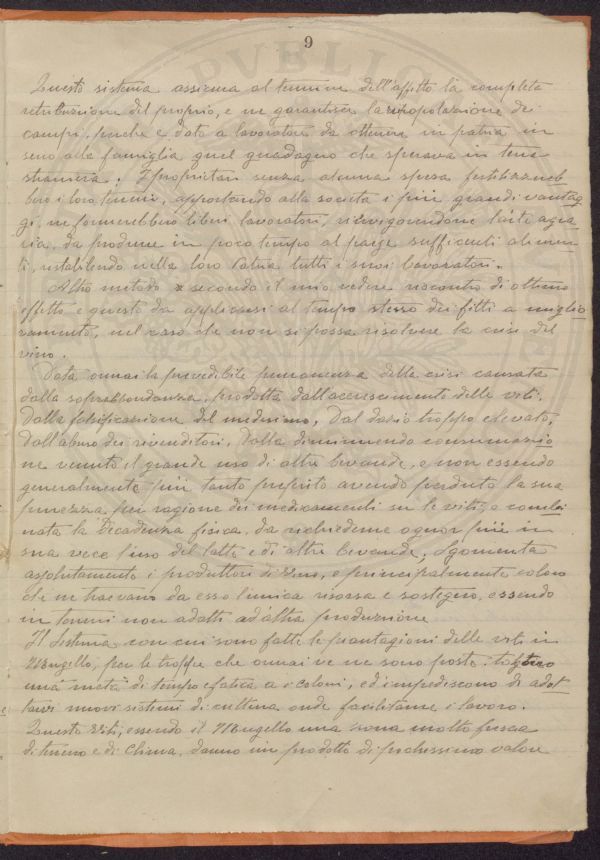 9
Questo sistema assicura al termine dell'affitto la completa
retribuzione del proprio, e ne garantisce la ripopolazione dei
campi, perche è dato a lavoratori da ottenere in patria in
seno alla famiglia quel guadagno che sperava in terra
straniera. I proprietari senza alcuna spesa fertilizzereb
bero i loro terreni, apportando alla società i più grandi vantag
gi, ne formerebbero liberi lavoratori, rinvigorendone l'arte agra
ria, da produrre in poco tempo al paese sufficenti alimen
ti, ristabilendo nella loro Patria tutti i suoi lavoratori.
Altro metodo secondo il mio vedere riscontro di ottimo
effetto e questo da applicarsi al tempo stesso dei fitti a miglio
ramento, nel caso che non si possa risolvere la crisi del
vino.
Data ormai la prevedibile permanenza della crisi causata
dalla soprabbondanza, prodotta dall'accrescimento delle viti.
Dalla falsificazione del medesimo, Dal dazio troppo elevato,
Dall'abuso dei rivenditori, Dalla diminuendo consumazio
ne venuto il grande uso di altre bevande, e non essendo
generalmente più tanto preferito avendo perduto la sua
purezza per ragione dei medicamenti su le viti, e combi
nata la Decadenza fisica, da richiederne ognor più in
sua vece l'uso del latte e di altre bevande; Sgomenta
assolutamente i produttori di Vino, e principalmente coloro
che ne traevano da esso l'unica risorsa e sostegno, essendo
in terreni non adatti ad altra produzione
Il Sistema con cui sono fatte le piantagioni delle viti in
Mugello, per le troppe che ormai ve ne sono poste, tolgono
una metà di tempo e fatica a i coloni, ed impediscono di adot
tarvi nuovi sistemi di cultura onde facilitarne i lavoro.
Queste Viti, essendo il Mugello una zona molto fresca
di terreno e di Clima, danno un prodotto di pochissimo valore